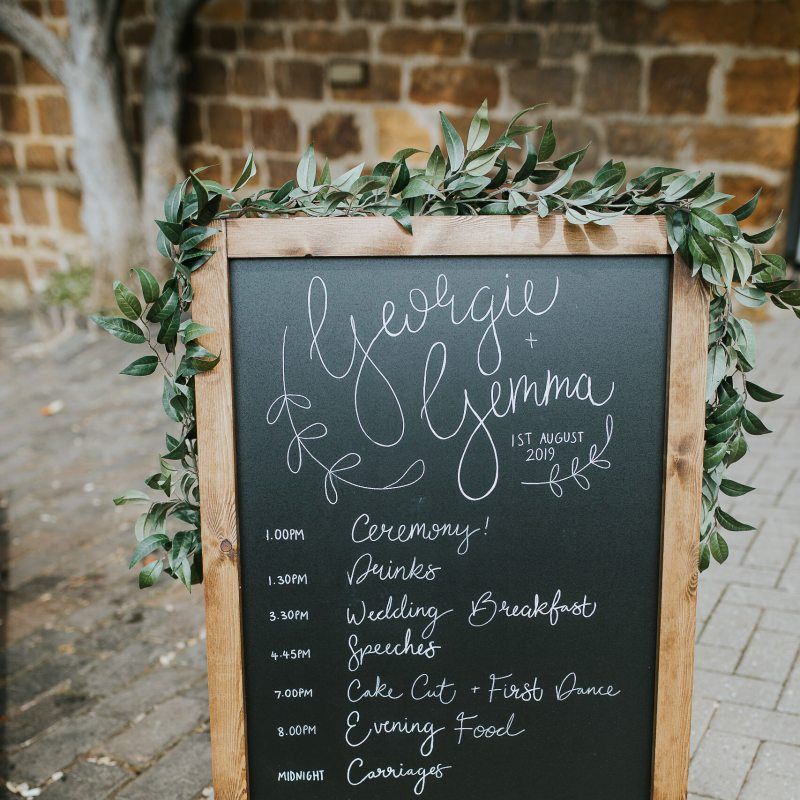 Georgie
+
Gemma
1ST AUGUST
2019
1.00PM Ceremony!
1.30PM Drinks
3.30PM Wedding Breakfast
4.45PM Speeches
7.00PM Cake Cut + First Dance
8.00PM Evening Food
MIDNIGHT Carriages